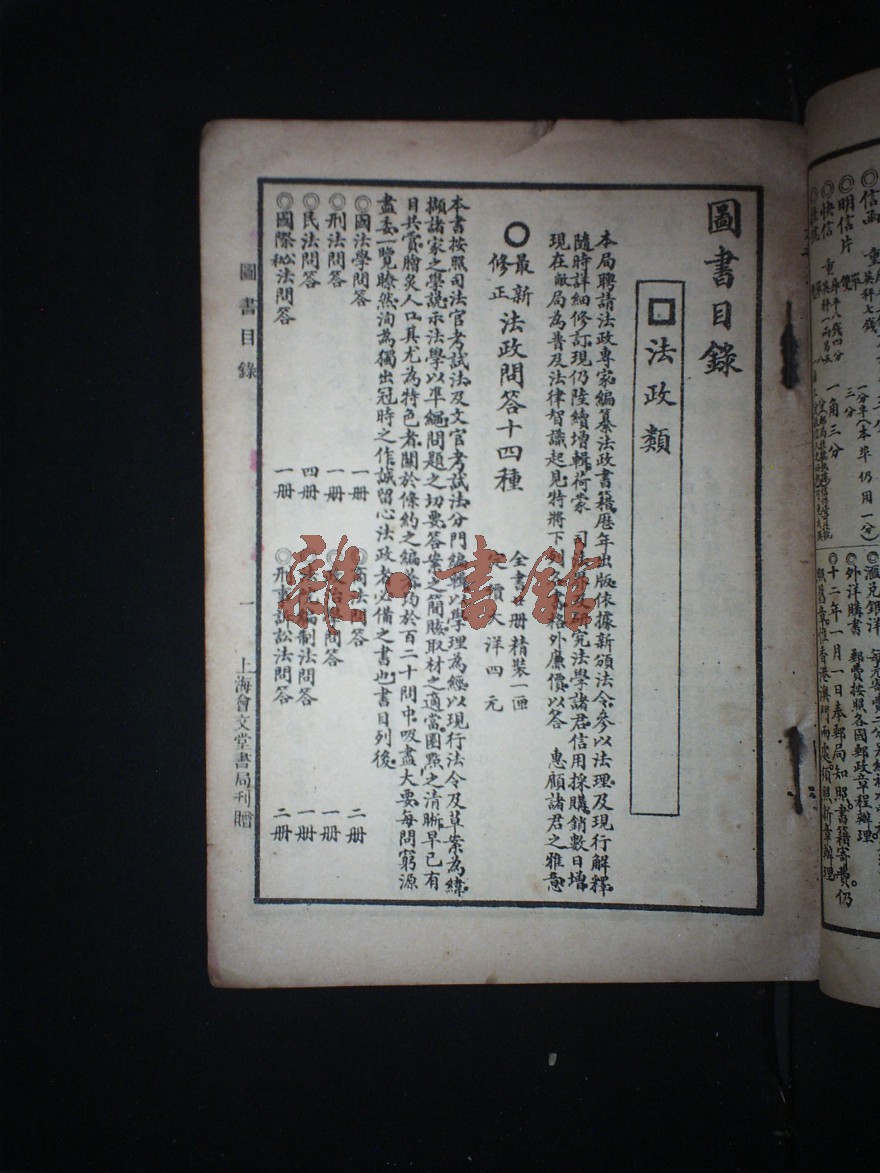 圖書目錄
法政類
本局聘請法政專家編纂法政書籍歷年出版依據新頒法令參以法理及現行解釋
隨時詳細修訂現仍陸續增輯荷蒙 司法界及研究法學諸君信用採購銷數日增
現在敝局為普及法律智識起見特將下列各書格外廉價以答 惠顧諸君之雅意
◎最新修正法政問答十四種 全書 冊精裝一匣 價大洋四元
本書按照司法官考試法及文官考試法分門編輯以學理為經以現行法令及草案為緯
擷諸家之學說示法學以準繩問題之切要答案之簡賅取材之適當圈點之清晰早已有
目共賞膾炙人口其尤為特色者關於條約之編纂均於百二十問中吸盡大要每問窮源
盡委一覽瞭然洵為獨出冠時之作誠留心法政者必備之書也書目列後
◎國法學問答 一冊 ◎商法問答 二冊
◎刑法問答 一冊 ◎政治學問答 一冊
◎民法問答 四冊 編制法問答 一冊
◎國際私法問答 一冊 ◎刑事訴訟法問答 二冊
圖書目錄 一 上海會文堂書局刊贈
雜·書館
◎匯兌銀洋
◎外洋購書 郵費按照各國郵政章程辦理
◎十二年一月一日奉郵局知照書籍寄費仍
照舊章惟香港澳門兩處須照新章辦理
◎信函
◎明信片
◎快信
一分半(本埠仍用一分)
三分
一角三分